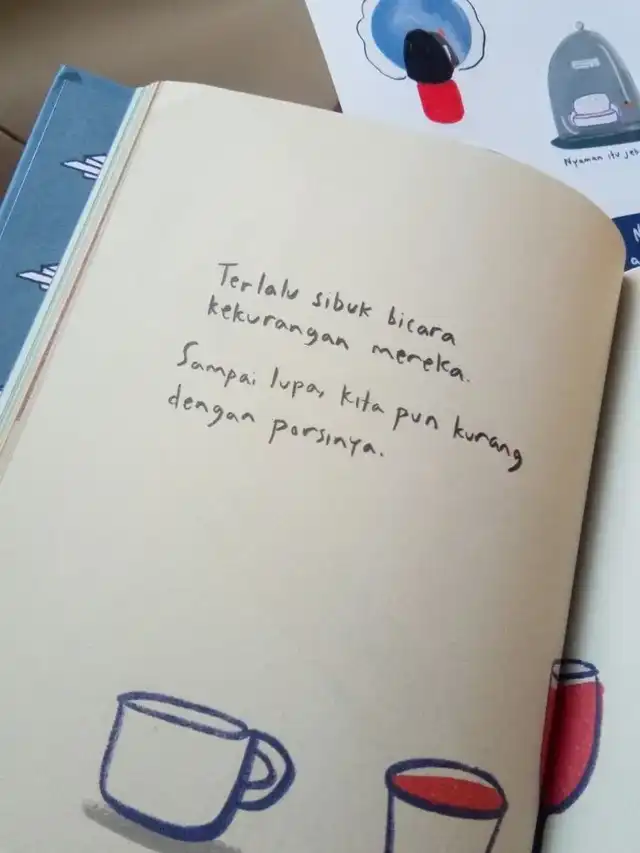 Nyaman itu jeb
Terlalu sibuk bicara
kekurangan mereka.
Sampai lupa, kita pun kurang
dengan porsinya.